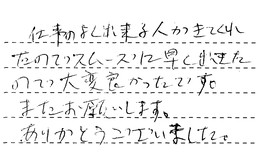 仕事のよく出来る人がきてくれ
たのでスムーズに早く出せた
ので大変良かったです。
またお願いします。
ありがとうございました。